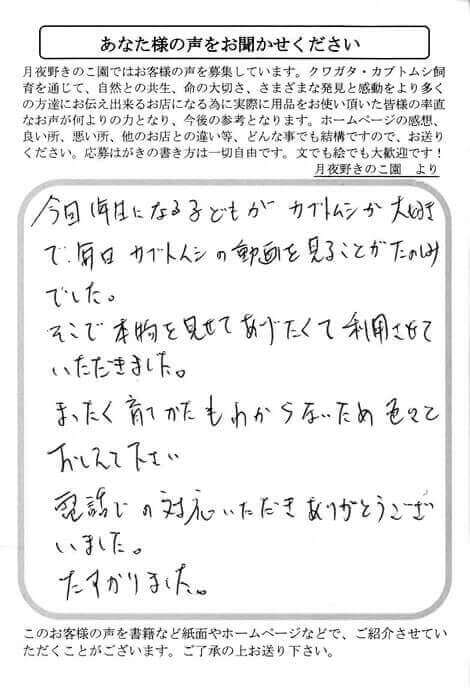 あなた様の声をお聞かせください
月夜野きのこ園ではお客様の声を募集しています。クワガタ・カブトムシ飼
育を通じて、自然との共生、命の大切さ、さまざまな発見と感動をより多く
の方達にお伝え出来るお店になる為に実際に用品をお使い頂いた皆様の率直
なお声が何よりの力となり、今後の参考となります。ホームページの感想、
良い所、悪い所、他のお店との違い等、どんな事でも結構ですので、お送り
ください。応募はがきの書き方は一切自由です。文でも絵でも大歓迎です！
月夜野きのこ園　より
今回 になる子どもが カブトムシが 大好き
で、毎日 カブトムシの動画を見ることがたのしみ
でした。
そこで本物を見せてあげたくて利用させて
いただきました。
まったく育てかたもわからないため色々と
おしえて下さい
電話での対応いただきありがとうござ
いました。
たすかりました。
このお客様の声を書籍など紙面やホームページなどで、ご紹介させてい
ただくことがございます。ご了承の上お送り下さい。